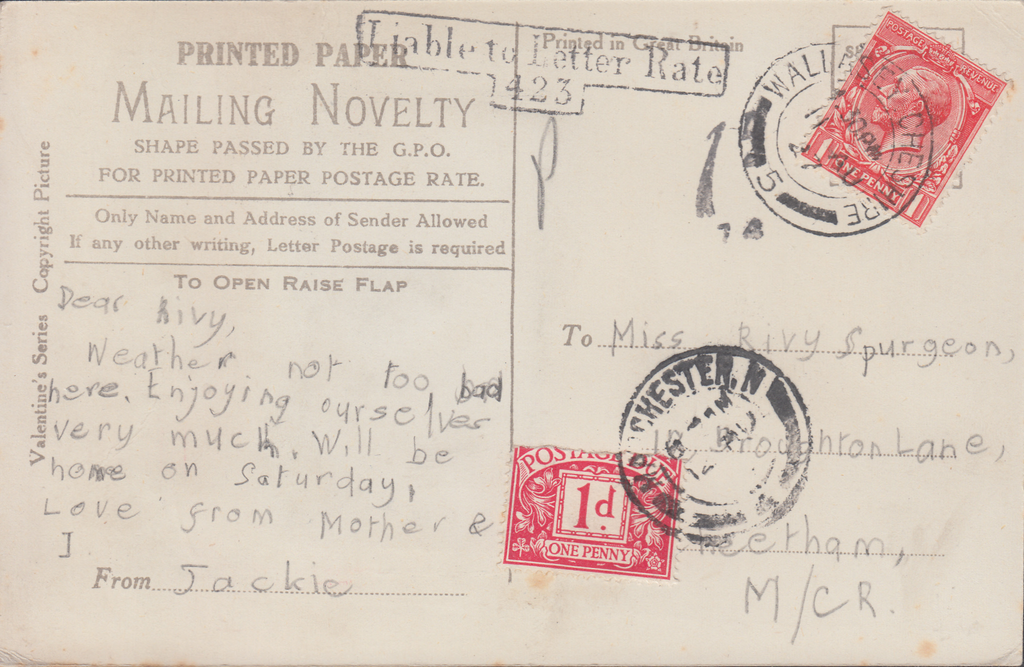 PRINTED PAPER
MAILING NOVELTY
SHAPE PASSED BY THE G.P.O.
FOR PRINTED PAPER POSTAGE RATE.
Only Name and Address of Sender Allowed
If any other writing, Letter Postage is required
TO OPEN RAISE FLAP
Valentine's Series Copyright Picture
Dear Rivy,
Weather not too bad
here. Enjoying ourselves
very much. Will be
home on Saturday,
Love from Mother &
J
From Jackie
Liable to Letter Rate
423
Printed in Great Britain
WALLASEY CHESHIRE
5
POSTAGE REVENUE
1 ONE PENNY 1
To Miss Rivy Spurgeon,
Broughton Lane,
Cheetham,
M/CR.
CHESTER. N
POSTAGE
1d.
ONE PENNY